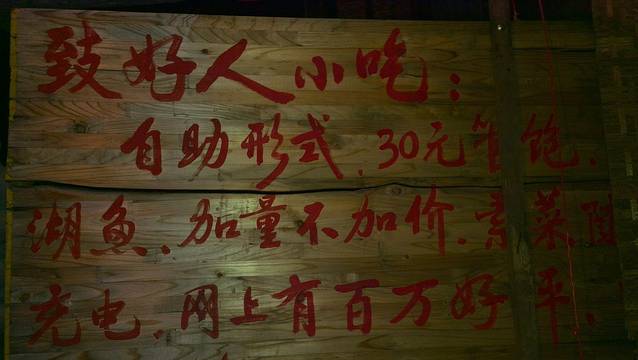 致好人小吃：
自助形式，30元管饱，
湖鱼，加量不加价，素菜随
充电，网上有百万好平，